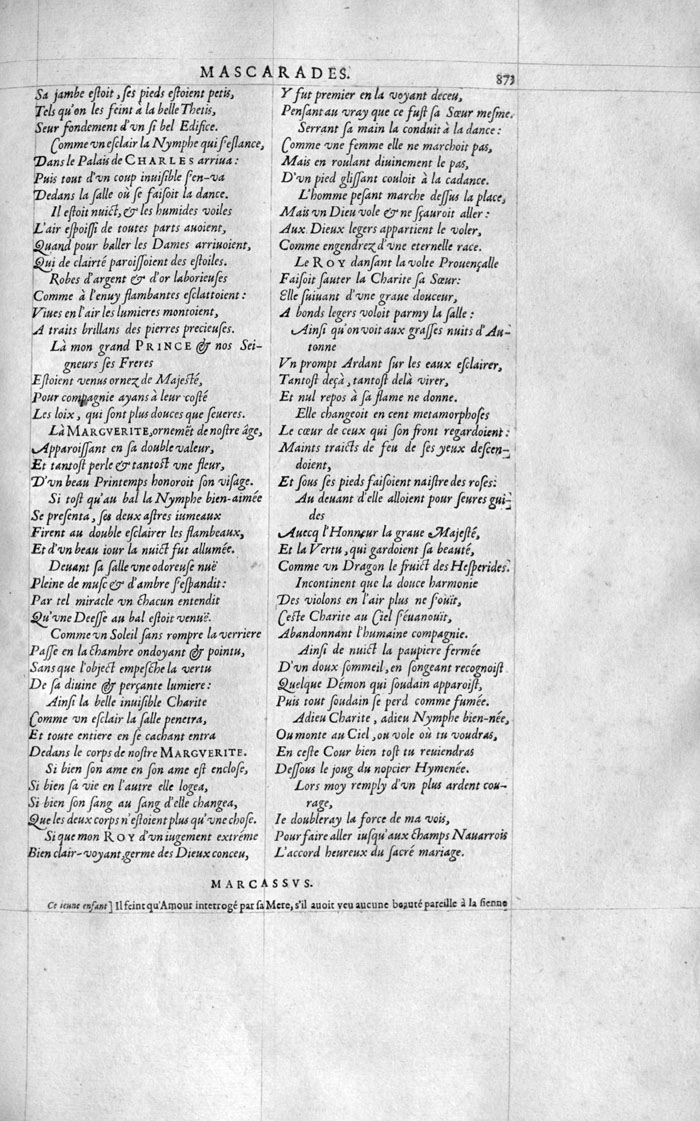 MASCARADES.
873
Sa jambe estoit, ses pieds estoient petis,
Tels qu'on les feint à la belle Thetis,
Seur fondement d'vn si bel Edifice.
Comme vn esclair la Nymphe qui s'eslance,
Dans le Palais de CHARLES arriua:
Puis tout d'vn coup inuisible s'en-va
Dedans la salle où se faisoit la dance.
Il estoit nuict, & les humides voiles
L'air espoissi de toutes parts auoient,
Quand pour baller les Dames arriuoient,
Qui de clairté paroissoient des estoiles.
Robes d'argent & d'or laborieuses
Comme à l'enuy flambantes esclattoient:
Viues en l'air les lumieres montoient,
A traits brillans des pierres precieuses.
Là mon grand PRINCE & nos Sei-
gneurs ses Freres
Estoient venus ornez de Majesté,
Pour compagnie ayans à leur costé
Les loix, qui sont plus douces que seueres.
Là MARGVERITE, ornemēt de nostre âge,
Apparoissant en sa double valeur,
Et tantost perle & tantost vne fleur,
D'vn beau Printemps honoroit son visage.
Si tost qu'au bal la Nymphe bien-aimée
Se presenta, ses deux astres iumeaux
Firent au double esclairer les flambeaux,
Et d'vn beau iour la nuict fut allumée.
Deuant sa salle vne odoreuse nuë
Pleine de musc & d'ambre s'espandit:
Par tel miracle vn chacun entendit
Qu'vne Deesse au bal estoit venuë.
Comme vn Soleil sans rompre la verriere
Passe en la chambre ondoyant & pointu,
Sans que l'object empesche la vertu
De sa diuine & perçante lumiere:
Ainsi la belle inuisible Charite
Comme vn esclair la salle penetra,
Et toute entiere en se cachant entra
Dedans le corps de nostre MARGVERITE.
Si bien son ame en son ame est enclose,
Si bien sa vie en l'autre elle logea,
Si bien son sang au sang d'elle changea,
Que les deux corps n'estoient plus qu'vne chose.
Si que mon ROY d'vn iugement extréme
Bien clair-voyant, germe des Dieux conceu,
Y fut premier en la voyant deceu,
Pensant au vray que ce fust sa Sœur mesme.
Serrant sa main la conduit à la dance:
Comme vne femme elle ne marchoit pas,
Mais en roulant diuinement le pas,
D'vn pied glissant couloit à la cadance.
L'homme pesant marche dessus la place,
Mais vn Dieu vole & ne sçauroit aller:
Aux Dieux legers appartient le voler,
Comme engendrez d'vne eternelle race.
Le ROY dansant la volte Prouençalle
Faisoit sauter la Charite sa Sœur:
Elle suiuant d'vne graue douceur,
A bonds legers voloit parmy la salle:
Ainsi qu'on voit aux grasses nuits d'Au-
tonne
Vn prompt Ardant sur les eaux esclairer,
Tantost deçà, tantost delà virer,
Et nul repos à sa flame ne donne.
Elle changeoit en cent metamorphoses
Le cœur de ceux qui son front regardoient:
Maints traicts de feu de ses yeux descen-
doient,
Et sous ses pieds faisoient naistre des roses:
Au deuant d'elle alloient pour seures gui-
des
Auecq l'Honneur la graue Majesté,
Et la Vertu, qui gardoient sa beauté,
Comme vn Dragon le fruict des Hesperides.
Incontinent que la douce harmonie
Des violons en l'air plus ne s'ouït,
Ceste Charite au Ciel s'éuanouït,
Abandonnant l'humaine compagnie.
Ainsi de nuict la paupiere fermée
D'vn doux sommeil, en songeant recognoist
Quelque Démon qui soudain apparoist,
Puis tout soudain se perd comme fumée.
Adieu Charite, adieu Nymphe bien-née,
Ou monte au Ciel, ou vole où tu voudras,
En ceste Cour bien tost tu reuiendras
Dessous le joug du nopcier Hymenée.
Lors moy remply d'vn plus ardent cou-
rage,
Ie doubleray la force de ma vois,
Pour faire aller iusqu'aux champs Nauarrois
L'accord heureux du sacré mariage.
MARCASSVS.
Ce ieune enfant] Il feint qu'Amour interrogé par sa Mere, s'il auoit veu aucune beauté pareille à la sienne